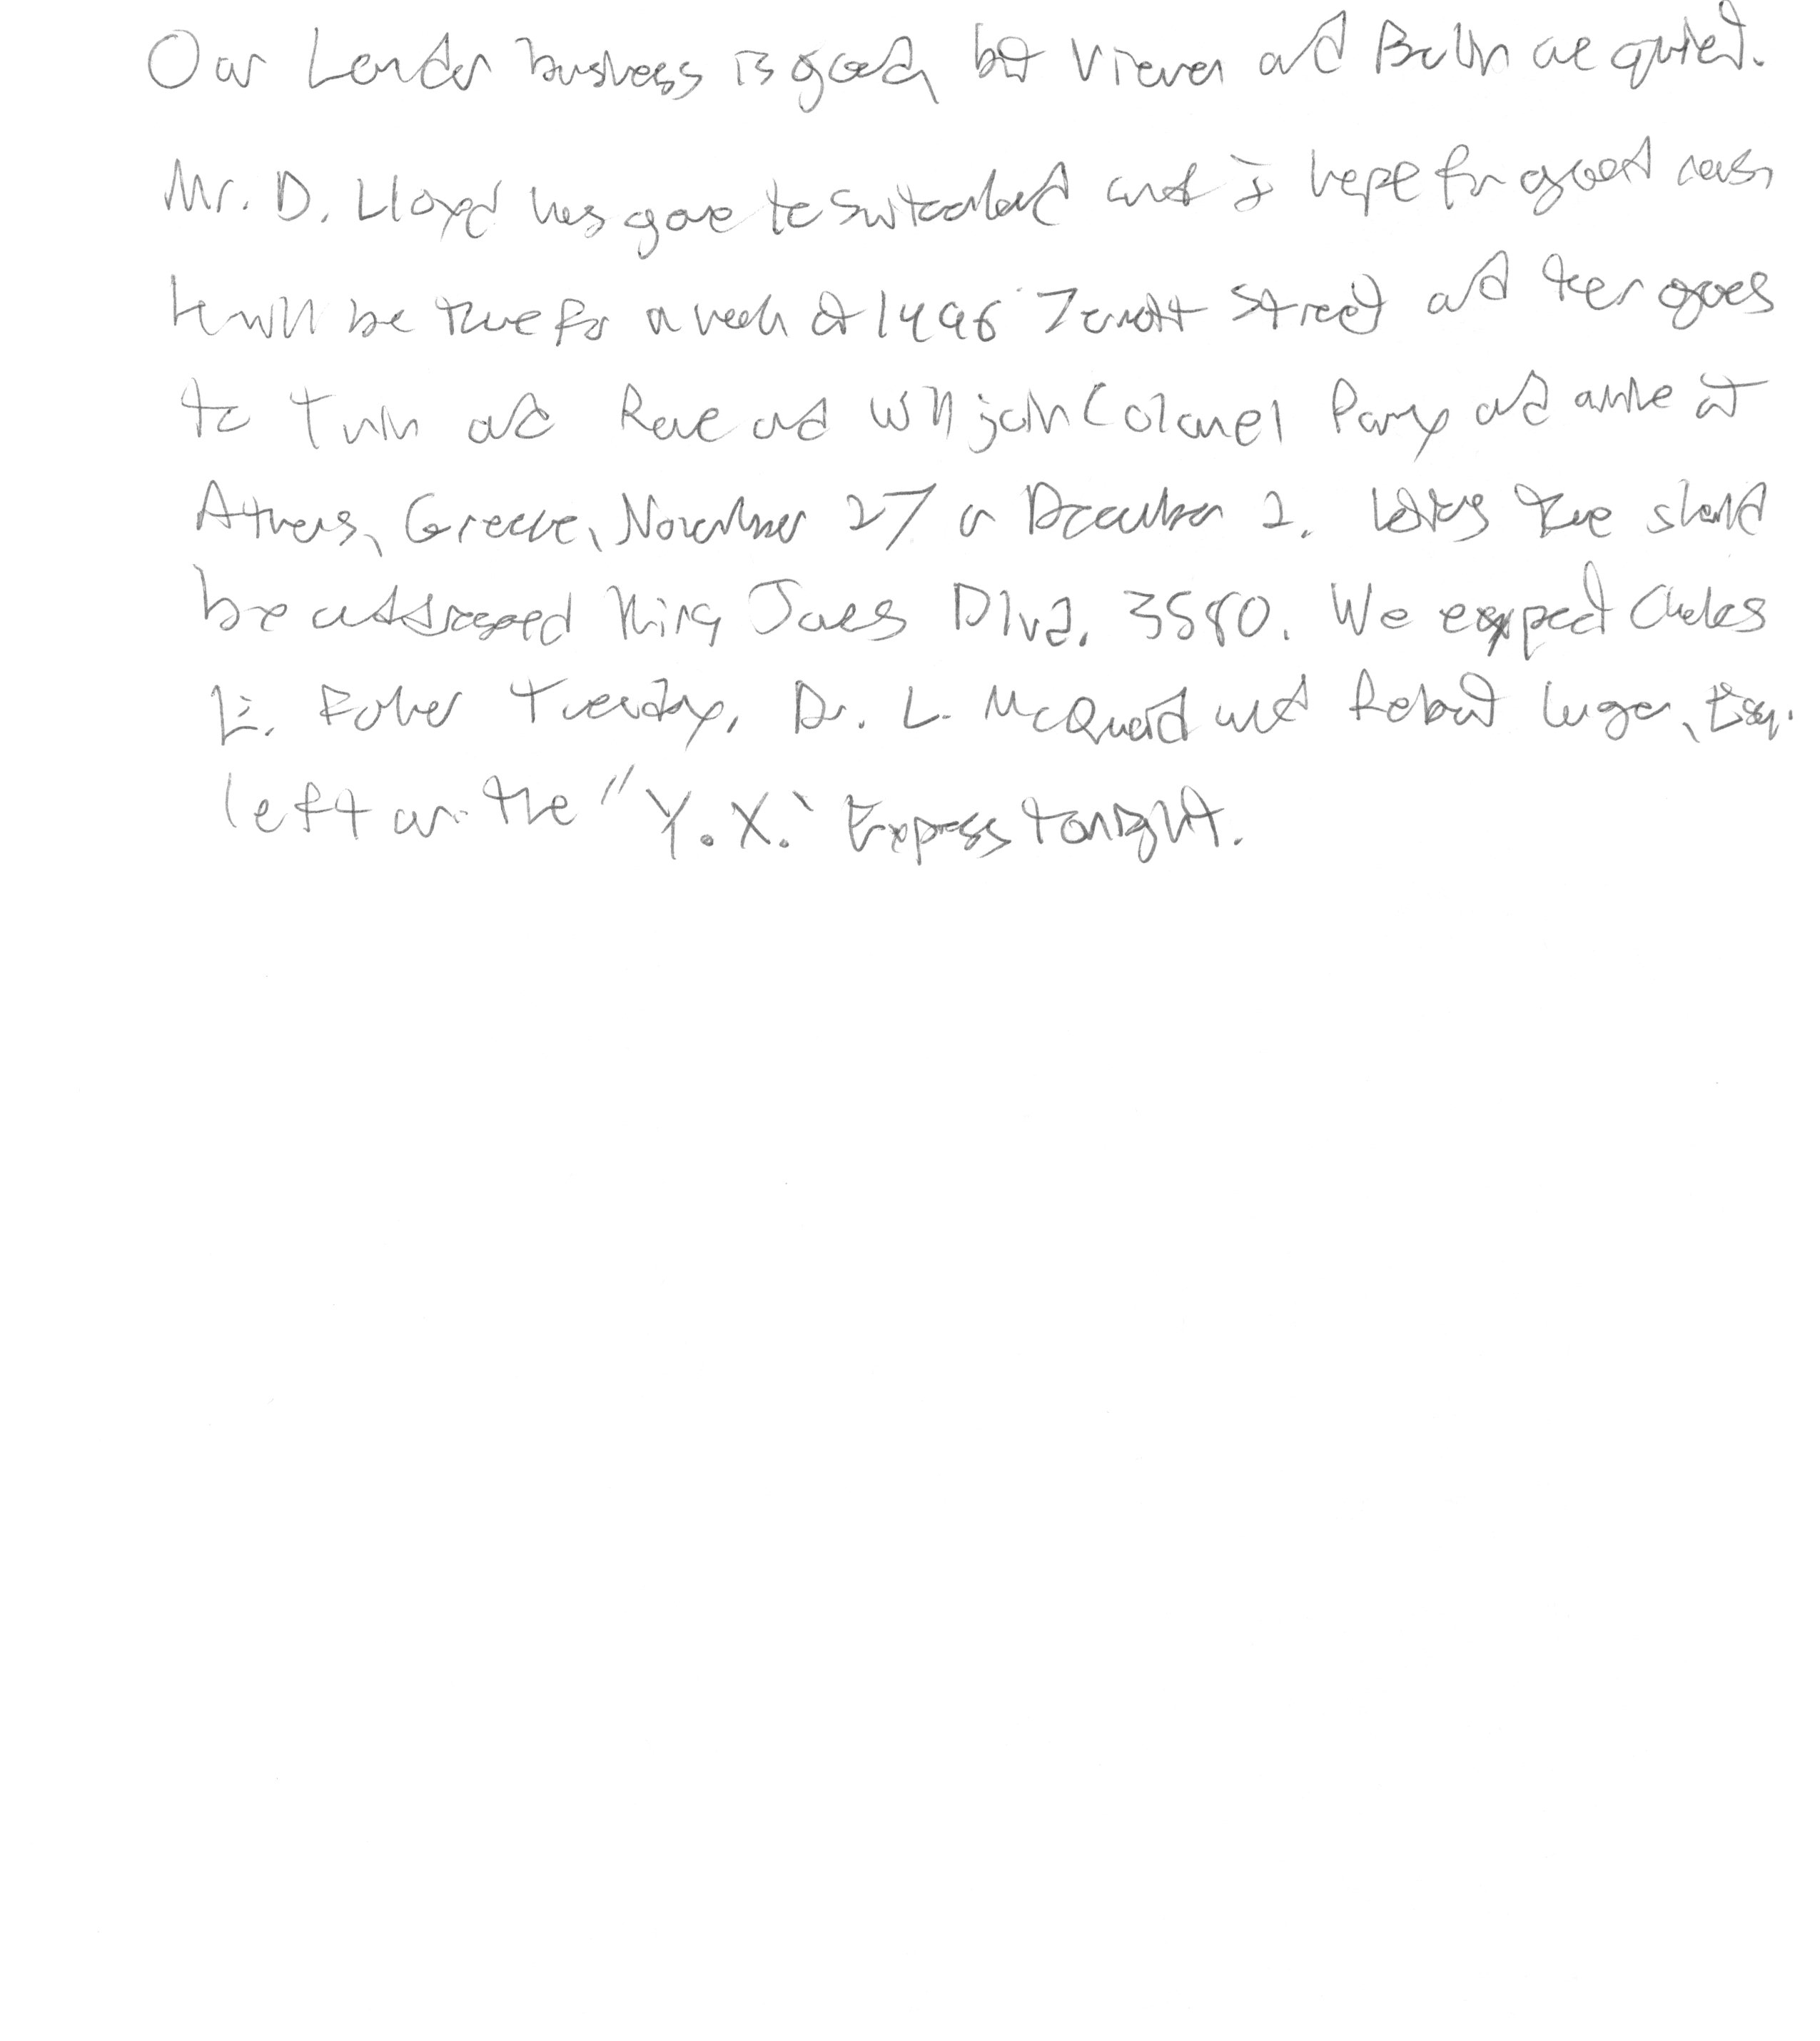 Our London business is good, but Vienna and Berlin are quiet.
Mr. D. Lloyd has gone to Switzerland and I hope for good news,
He will be there for a week at 1496 Zermott Street and then goes
to Turin and Rome and will join Colonel Parry and arrive at
Athens, Greece, November 27 or December 2. Letters there should
be addressed King James Blvd. 3580. We expect Charles
E. Fuller Tuesday, Dr. L. McQuaid and Robert Unger, Esq.
left on the "Y.X." Express tonight.